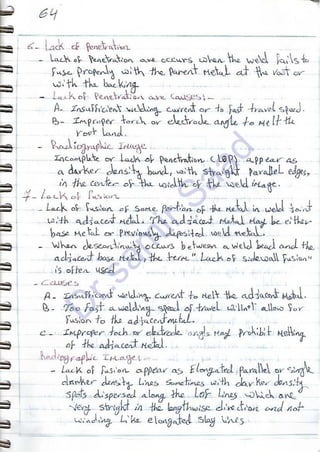 64
6- Lack of Penetration
- Lack of Penetration are occurs when the weld fails to
fuse Properly with the Parent Metal at the root or
with the backing.
- Lack of Penetration are Causes:-
A- Insufficient welding current or to fast travel speed.
B- Improper torch or electrode angle to melt the
root land.
- Radiographic Image
Incomplete or Lack of Penetration (LOP) appear as
a darker density band, with straight Parallel edges,
in the center of the width of the weld image.
7- Lack of Fusion
- Lack of Fusion of some portion of the metal in weld joint
with adjacent metal. The adjacent Metal May be either
base Metal or Previously deposited weld metal.
- When descontinuity occurs between a weld bead and the
adjacent base metal, the term "Lack of sidewall Fusion"
is often used
- Causes
A- Insufficient welding current to Melt the adjacent Metal.
B- Too fast a welding speed of travel will not allow for
Fusion to the adjacent metal.
C- Improper toch or electrode angls May Prohibit Melting
of the adjacent Metal.
Radiographic Image:-
- Lack of Fusion appear as Elongated parallel or single
darker density Lines Sometimes with darker density
spots dispersed along the LOF Lines which are
very stright in the lengthwise direction and not
winding Like elongated slag lines